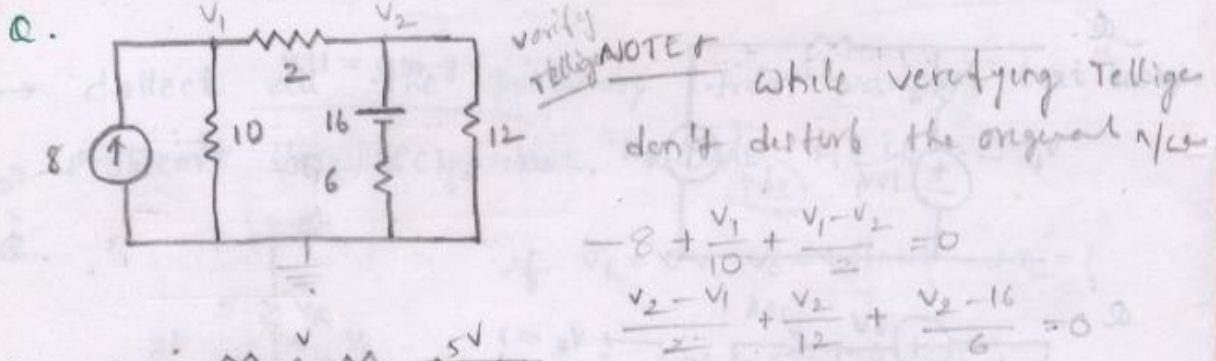 Q.
V₁ V₂
2
8 10 16 12
6
verify
NOTE
while verifying Tellige
don't disturb the original n/w
- 8 + V₁/10 + (V₁ - V₂)/2 = 0
(V₂ - V₁)/2 + V₂/12 + (V₂ - 16)/6 = 0
V 5V